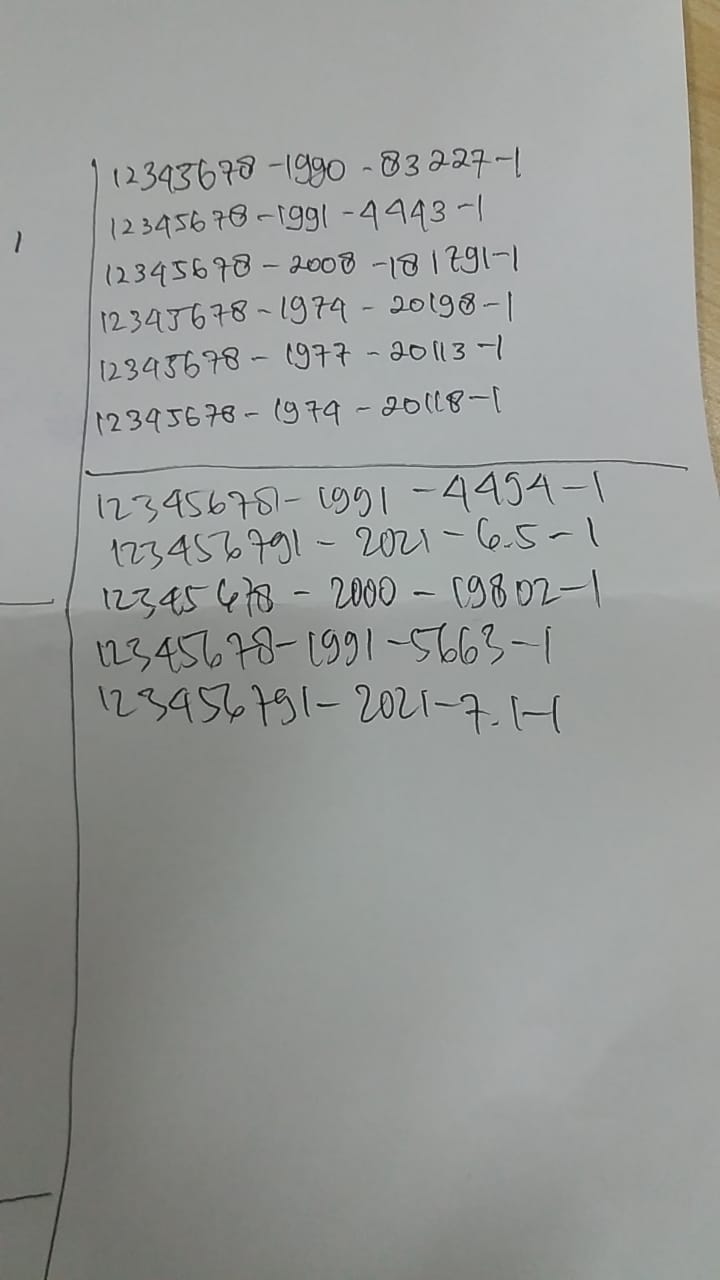 12345678-1990-83227-1
1
12345678-1991-4443-1
12345678-2008-181791-1
12345678-1974-20198-1
12345678-1977-20113-1
12345678-1974-20118-1
12345678-1991-4494-1
123456791-2021-6.5-1
12345678-2000-19802-1
12345678-1991-5663-1
123456791-2021-7.1-1